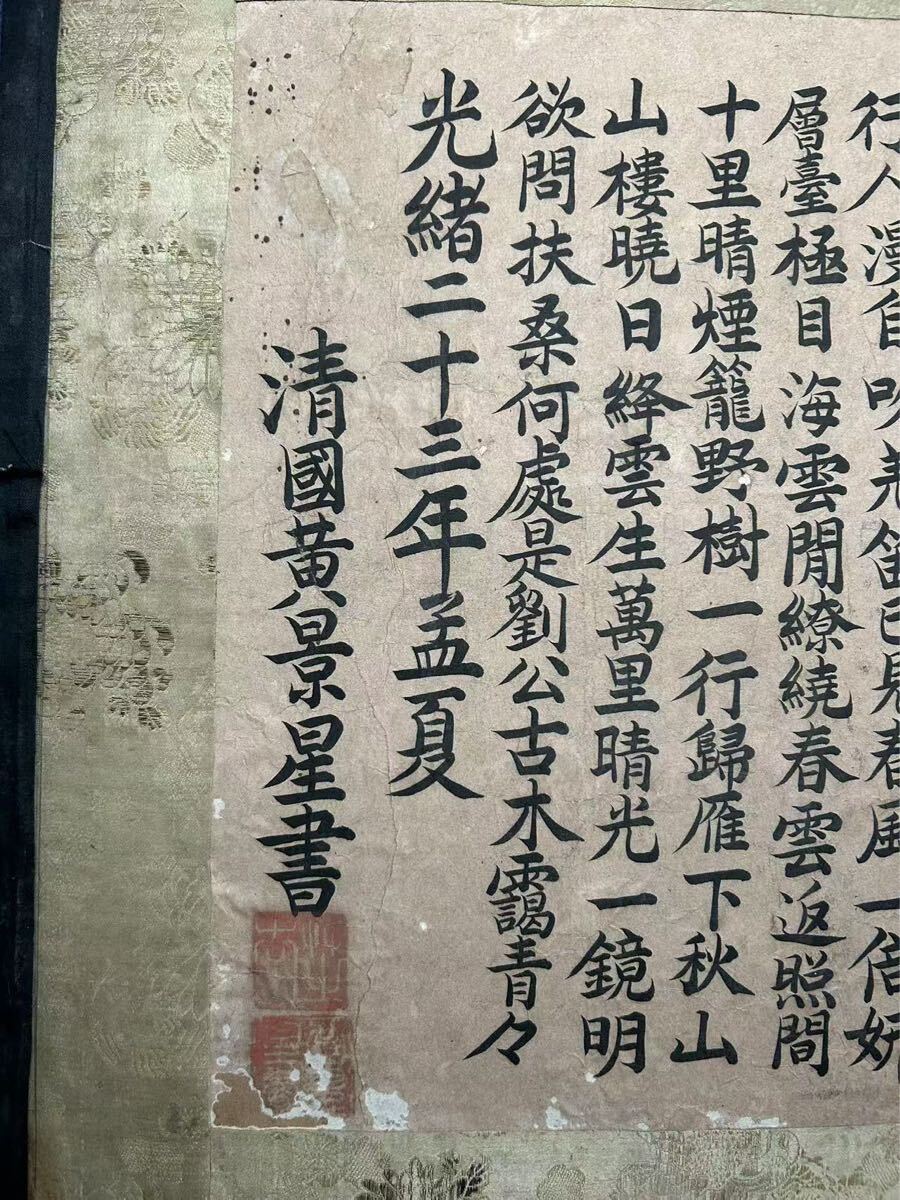 行人漫自吹羌笛已見春風一倍妍
層臺極目海雲間繚繞春雲返照間
十里晴煙籠野樹一行歸雁下秋山
山樓曉日絳雲生萬里晴光一鏡明
欲問扶桑何處是劉公古木靄青々
光緒二十三年孟夏
清國黃景星書